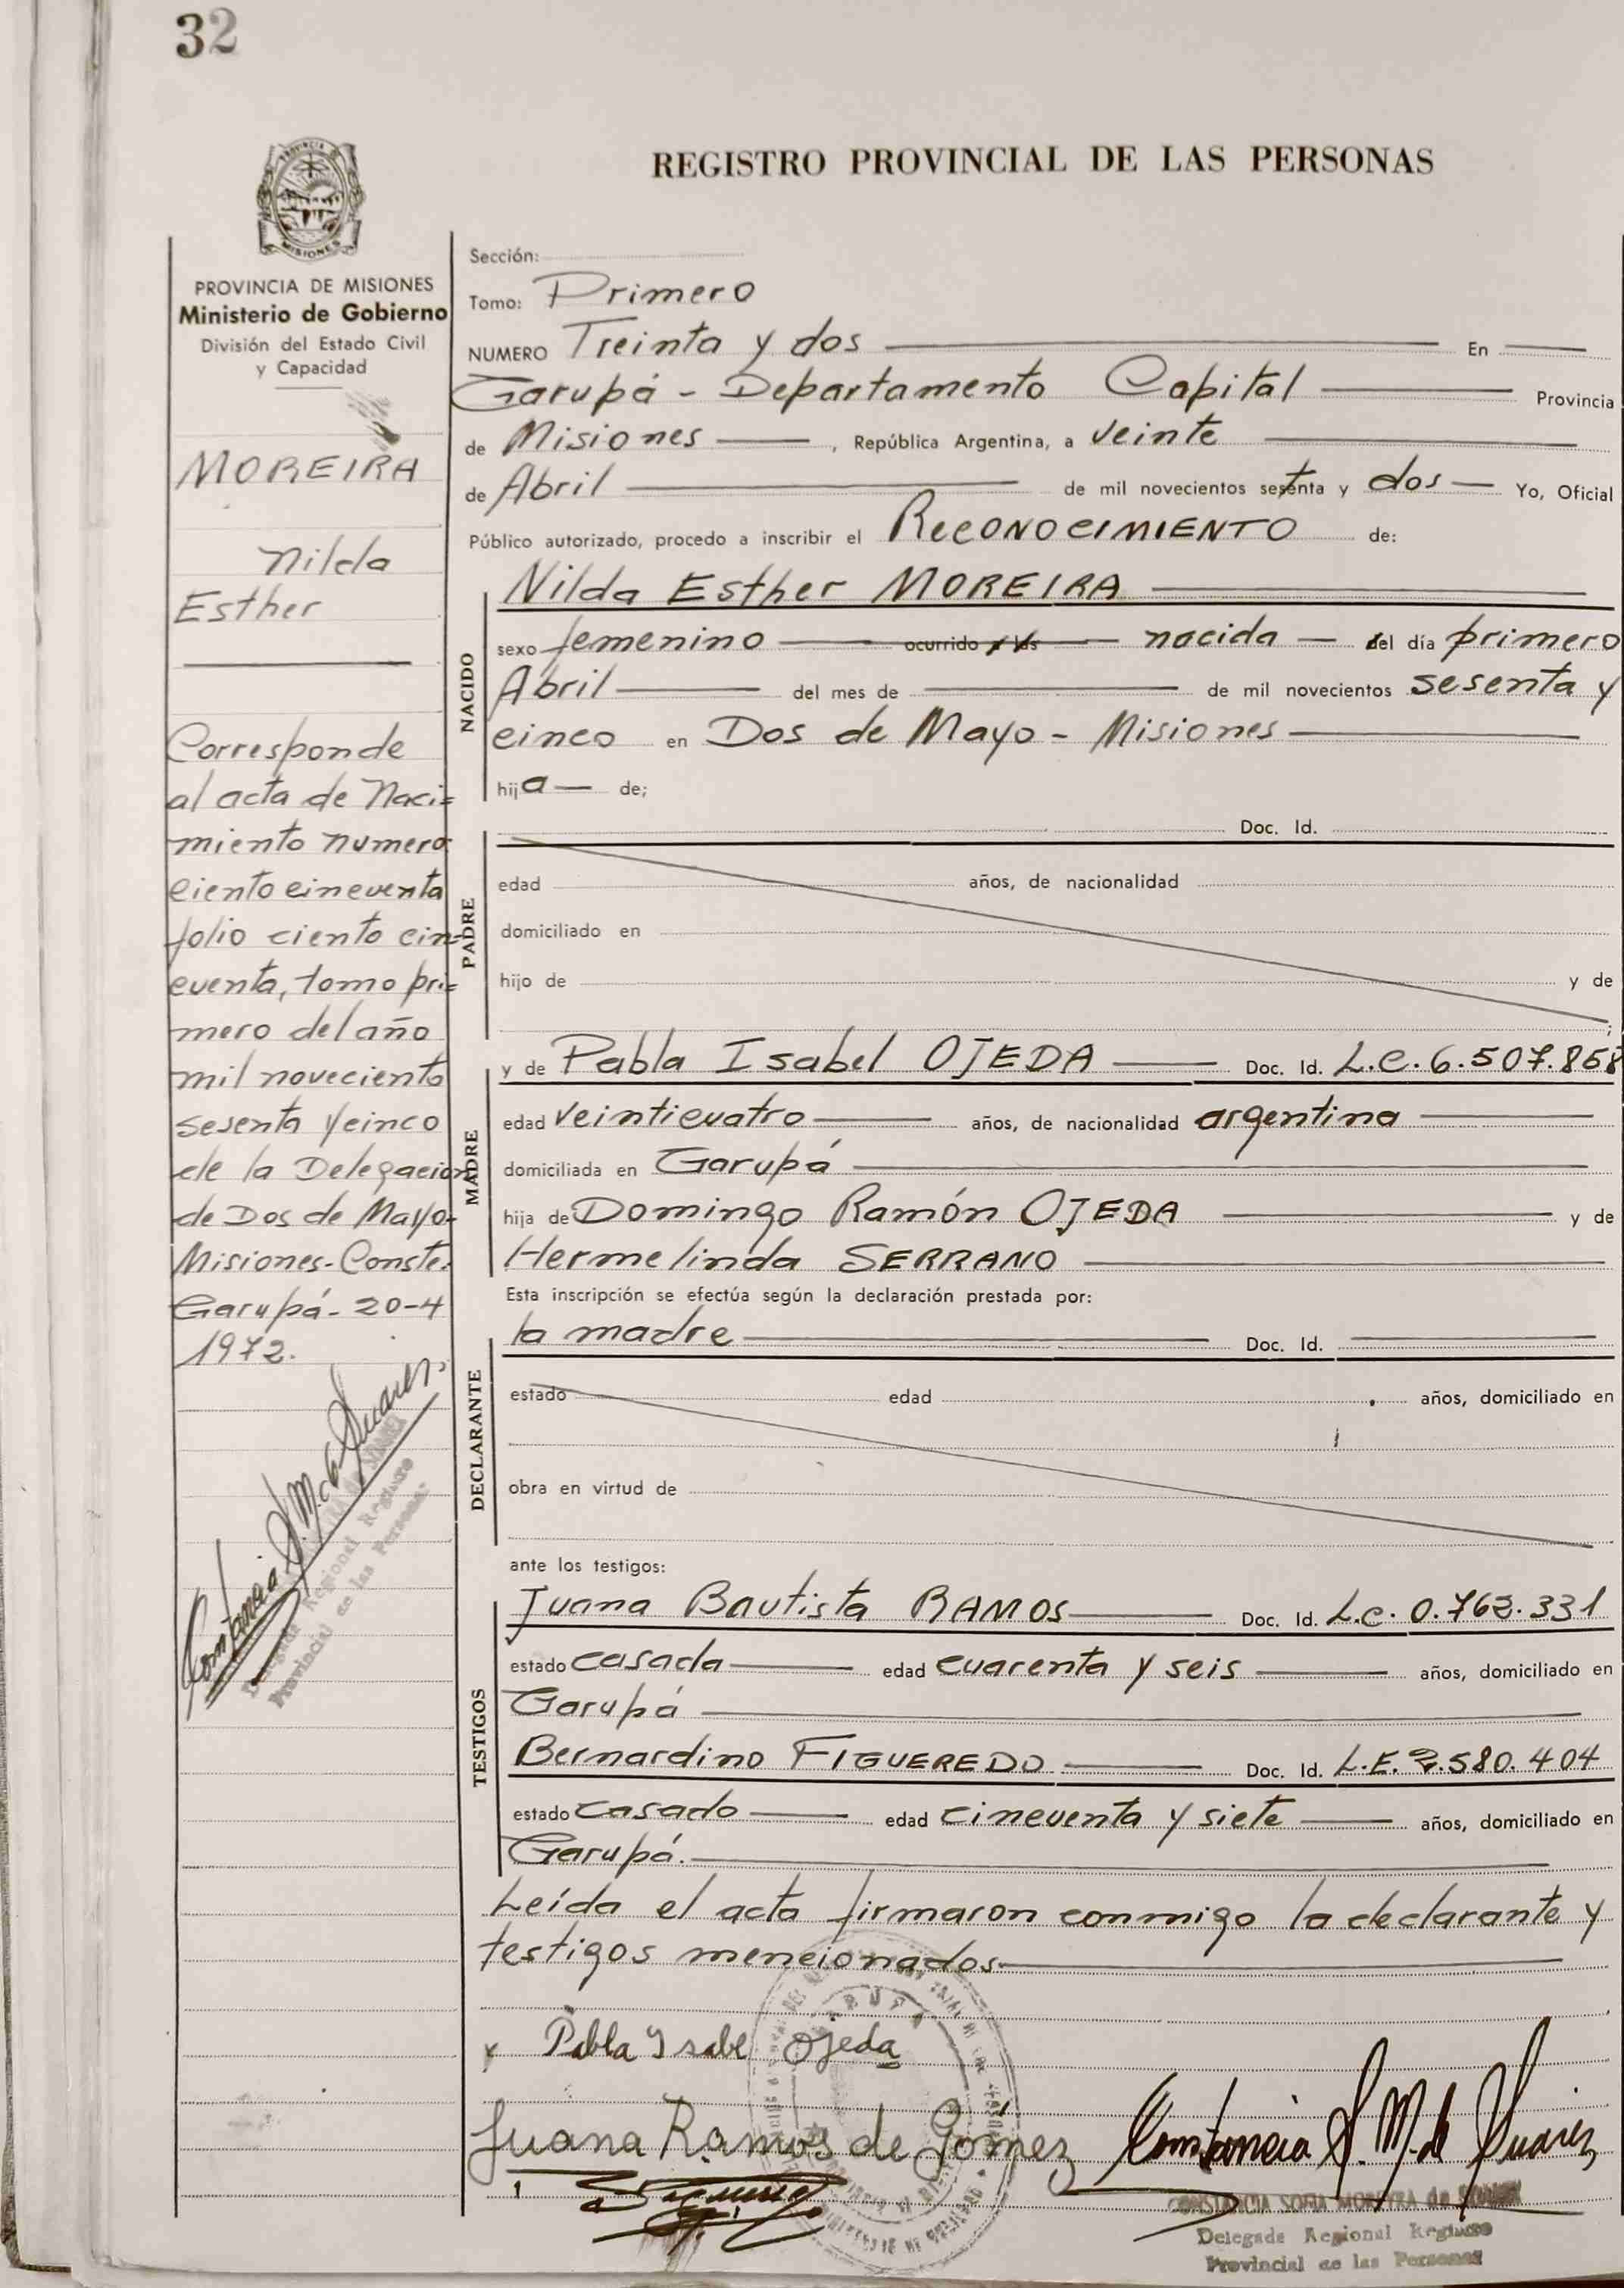 32
REGISTRO PROVINCIAL DE LAS PERSONAS
MISIONES
PROVINCIA DE MISIONES
Ministerio de Gobierno
División del Estado Civil
y Capacidad
MOREIRA
Nilda
Esther
Corresponde
al acta de Naci=
miento numero
ciento cincuenta
folio ciento cin=
cuenta, tomo pri=
mero del año
mil noveciento
sesenta y cinco
de la Delegacion
de Dos de Mayo-
Misiones-Conste.
Garupá-20-4
1972.
Constancia S. M. de Suarez
Delegada Regional Registro
Provincial de las Personas
Sección:
Tomo: Primero
NUMERO Treinta y dos En
Garupá - Departamento Capital Provincia
de Misiones , República Argentina, a veinte
de Abril de mil novecientos setenta y dos Yo, Oficial
Público autorizado, procedo a inscribir el RECONOCIMIENTO de:
NACIDO
Nilda Esther MOREIRA
sexo femenino ocurrido a las nacida el día primero
Abril del mes de de mil novecientos sesenta y
cinco en Dos de Mayo - Misiones
hija de;
PADRE
Doc. Id.
edad años, de nacionalidad
domiciliado en
hijo de y de
;
MADRE
y de Pabla Isabel OJEDA Doc. Id. L.C. 6.507.858
edad veinticuatro años, de nacionalidad argentina
domiciliada en Garupá
hija de Domingo Ramón OJEDA y de
Hermelinda SERRANO
Esta inscripción se efectúa según la declaración prestada por:
DECLARANTE
la madre Doc. Id.
estado edad años, domiciliado en
obra en virtud de
ante los testigos:
TESTIGOS
Juana Bautista RAMOS Doc. Id. L.C. 0.763.331
estado casada edad cuarenta y seis años, domiciliado en
Garupá
Bernardino FIGUEREDO Doc. Id. L.E. 2.580.404
estado casado edad cincuenta y siete años, domiciliado en
Garupá.
Leída el acta firmaron conmigo la declarante y
testigos mencionados
x Pabla Ysabel Ojeda
Juana Ramos de Gómez Constancia S. M. de Suarez
CONSTANCIA SOFIA MOREYRA de SUAREZ
Delegada Regional Registro
Provincial de las Personas